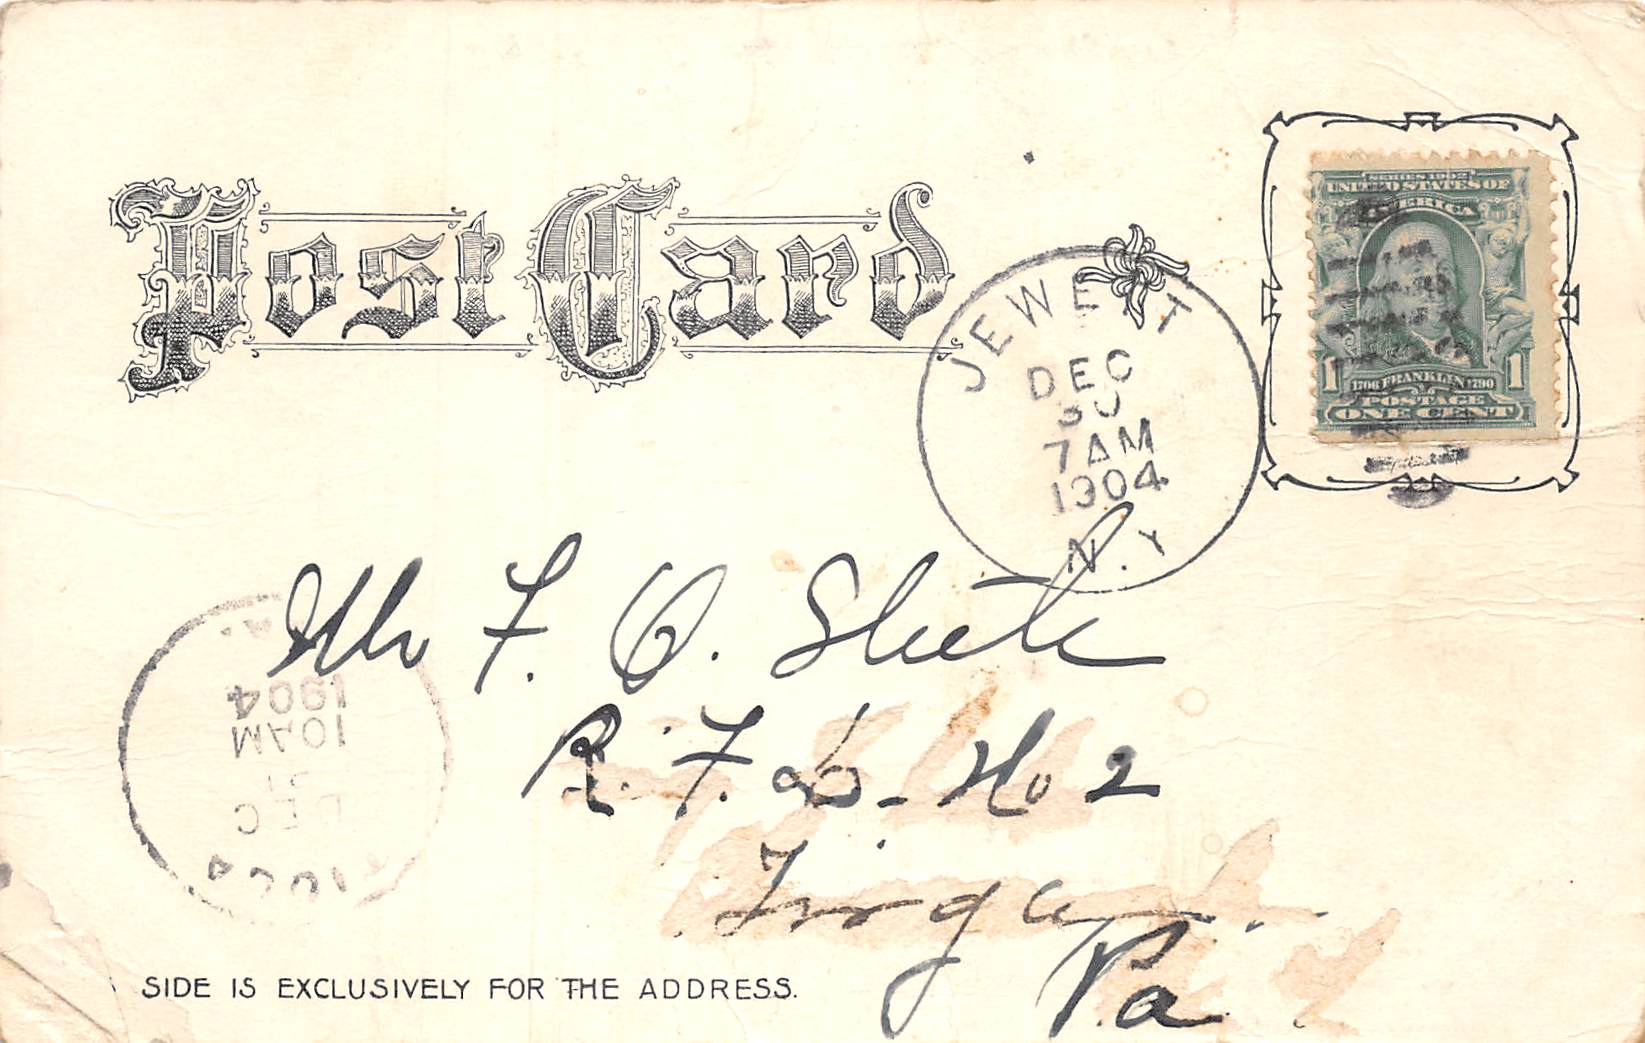 Post Card
SERIES 1902
UNITED STATES OF
AMERICA
1 1706 FRANKLIN 1790 1
POSTAGE
ONE CENT
JEWETT
DEC
30
7 AM
1904
N.Y.
Mr F. O. Steele
R. F. D. No 2
Tioga
Pa
1904
10 AM
31
DEC
SIDE IS EXCLUSIVELY FOR THE ADDRESS.